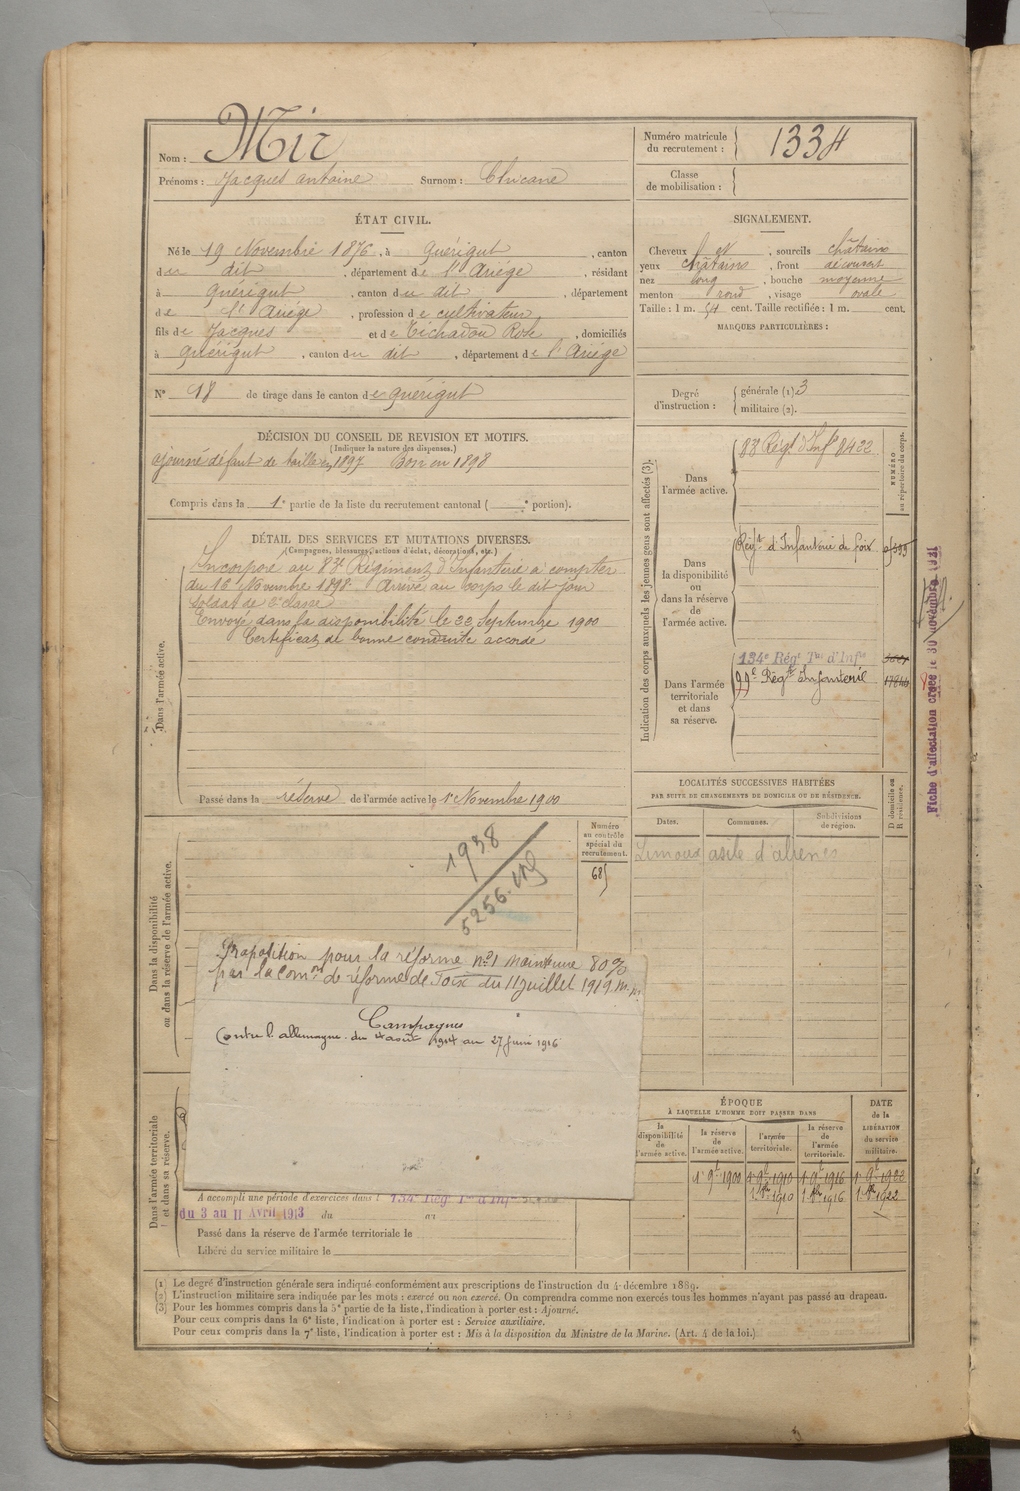 Nom : Mir
Prénoms : Jacques antoine Surnom : Chicane
Numéro matricule du recrutement : 1334
Classe de mobilisation :
ÉTAT CIVIL.
Né le 19 Novembre 1876, à Quérigut, canton
du dit, département de l'Ariège, résidant
à Quérigut, canton du dit, département
de l'Ariège, profession de cultivateur
fils de Jacques et de Téchadou Rose, domiciliés
à Quérigut, canton du dit, département de l'Ariège
N° 18 de tirage dans le canton de Quérigut
SIGNALEMENT.
Cheveux et, sourcils châtains
yeux châtains, front découvert
nez long, bouche moyenne
menton rond, visage ovale
Taille : 1 m. 54 cent. Taille rectifiée : 1 m. cent.
MARQUES PARTICULIÈRES :
Degré d'instruction : générale (1) 3
militaire (2).
DÉCISION DU CONSEIL DE REVISION ET MOTIFS.
(Indiquer la nature des dispenses.)
ajourné défaut de taille en 1897 Bon en 1898
Compris dans la 1e partie de la liste du recrutement cantonal ( e portion).
DÉTAIL DES SERVICES ET MUTATIONS DIVERSES.
(Campagnes, blessures, actions d'éclat, décorations, etc.)
Dans l'armée active.
Incorporé au 83e Régiment d'Infanterie à compter
du 16 Novembre 1898. Arrivé au corps le dit jour
soldat de 2e classe
Envoyé dans la disponibilité le 22 Septembre 1900
Certificat de bonne conduite accordé
Passé dans la réserve de l'armée active le 1er Novembre 1900
Indication des corps auxquels les jeunes gens sont affectés (3).
NUMÉRO au répertoire du corps.
Dans l'armée active.
83 Régt d'Infie 8422
Dans la disponibilité ou dans la réserve de l'armée active.
Régt d'Infanterie de foix
Dans l'armée territoriale et dans sa réserve.
134e Régt Tal d'Infie
99e Régt Infanterie
Fiche d'affectation créée le 30 novembre 1921
LOCALITÉS SUCCESSIVES HABITÉES
PAR SUITE DE CHANGEMENTS DE DOMICILE OU DE RÉSIDENCE.
Dates. Communes. Subdivisions de région. D domicile ou R résidence.
Limoux asile d'alienés
Dans la disponibilité ou dans la réserve de l'armée active.
Numéro au contrôle spécial du recrutement.
685
1938
5256.
Proposition pour la réforme n°1 maintenue 80%
par la comon de réforme de Foix du 11 juillet 1919
Campagnes
Contre l'allemagne du 4 août 1914 au 27 juin 1916
Dans l'armée territoriale et dans sa réserve.
A accompli une période d'exercices dans l 134e Rég Tal d'Infie
du 3 au 11 Avril 1913 du au
Passé dans la réserve de l'armée territoriale le
Libéré du service militaire le
ÉPOQUE
À LAQUELLE L'HOMME DOIT PASSER DANS
la disponibilité de l'armée active. la réserve de l'armée active. l'armée territoriale. la réserve de l'armée territoriale. DATE de la LIBÉRATION du service militaire.
1er 9bre 1900 1er 9bre 1910 1er 9bre 1916 1er 9bre 1922
1910 1916 1922
(1) Le degré d'instruction générale sera indiqué conformément aux prescriptions de l'instruction du 4 décembre 1889.
(2) L'instruction militaire sera indiquée par les mots : exercé ou non exercé. On comprendra comme non exercés tous les hommes n'ayant pas passé au drapeau.
(3) Pour les hommes compris dans la 5e partie de la liste, l'indication à porter est : Ajourné.
Pour ceux compris dans la 6e liste, l'indication à porter est : Service auxiliaire.
Pour ceux compris dans la 7e liste, l'indication à porter est : Mis à la disposition du Ministre de la Marine. (Art. 4 de la loi.)